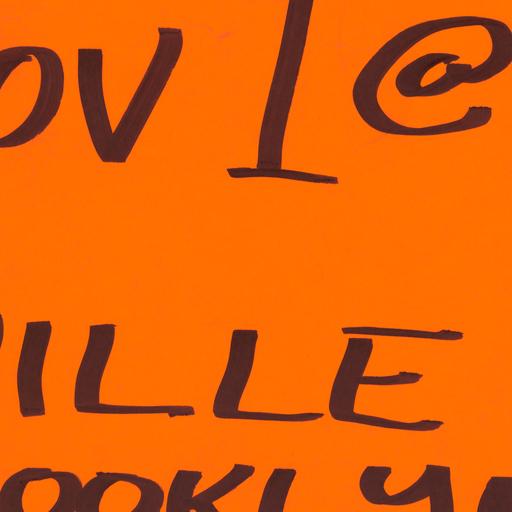 OV 1 @
ILLE
OOKLYN